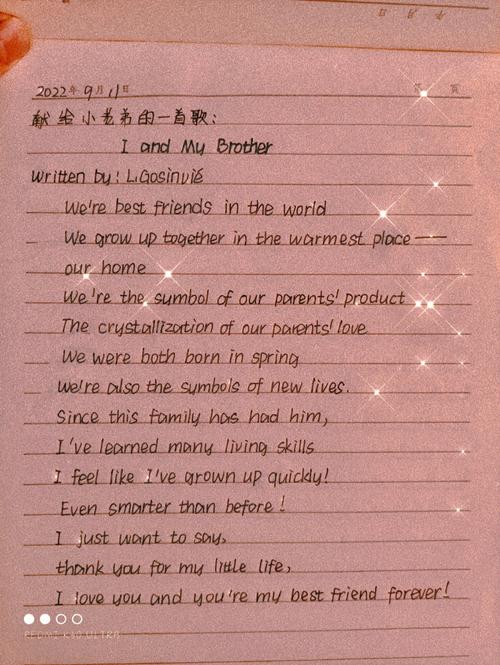 2022年9月11日
献给小老弟的一首歌:
I and My Brother
Written by: L.Gosinvié
We're best friends in the world
We grow up together in the warmest place ——
our home
We're the symbol of our parents' product
The crystallization of our parents' love
We were both born in spring
We're also the symbols of new lives.
Since this family has had him,
I've learned many living skills
I feel like I've grown up quickly!
Even smarter than before!
I just want to say,
thank you for my little life,
I love you and you're my best friend forever!
REDMI K50 ULTRA